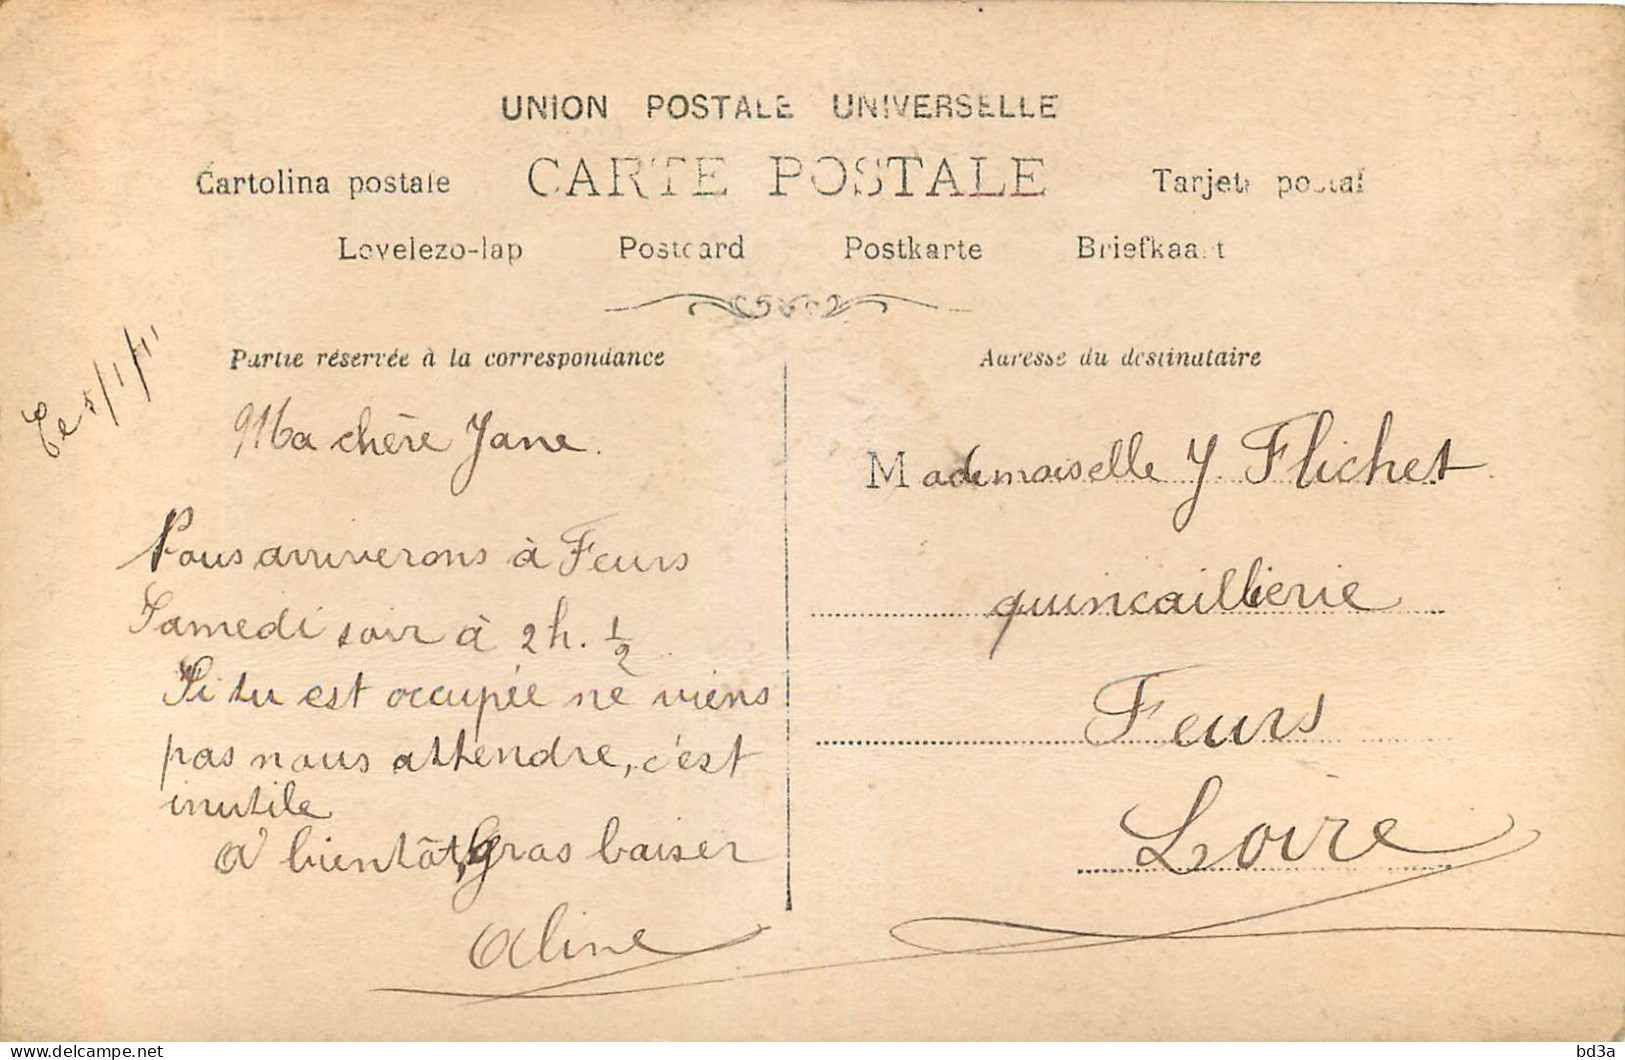 UNION POSTALE UNIVERSELLE
Cartolina postale CARTE POSTALE Tarjeta postal
Levelezo-lap Postcard Postkarte Briefkaart
Partie réservée à la correspondance
Ce 5/1/11
Ma chère Jane.
Nous arriverons à Feurs
Samedi soir à 2h. 1/2
Si tu est occupée ne viens
pas nous attendre, c'est
inutile
A bientôt, gras baiser
Aline
Adresse du destinataire
Mademoiselle J. Flichet
quincaillierie
Feurs
Loire
bd3a